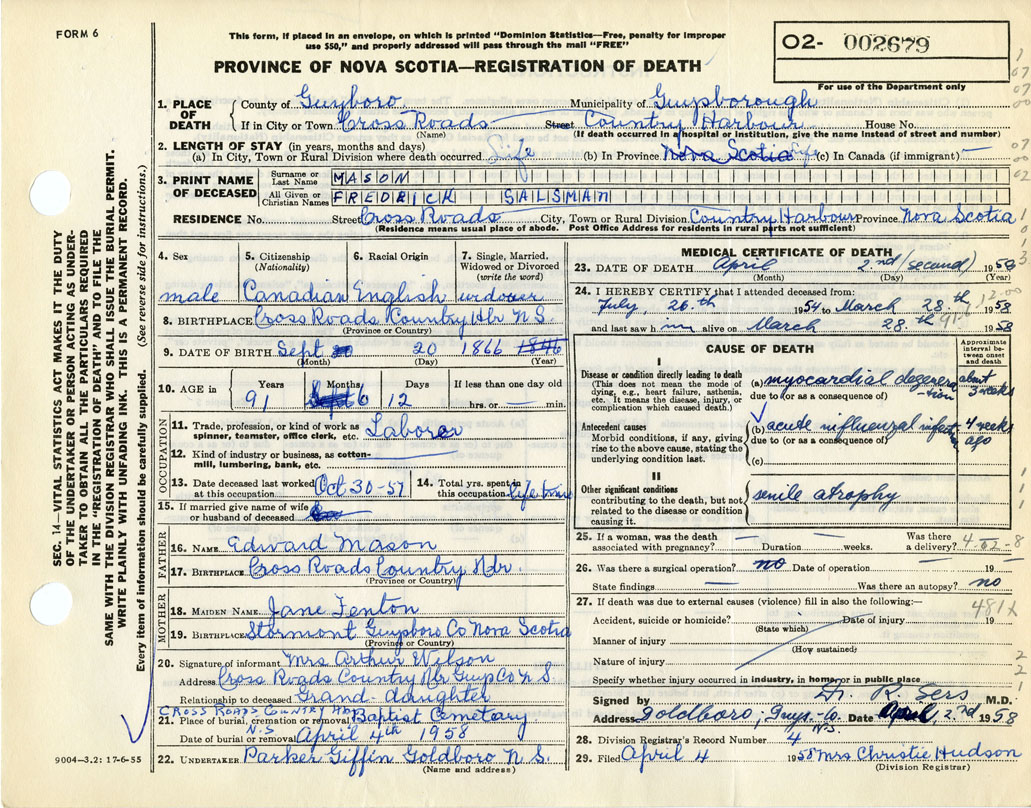 FORM 6
This form, if placed in an envelope, on which is printed "Dominion Statistics—Free, penalty for improper
use $50," and properly addressed will pass through the mail "FREE"
O2- 002679
For use of the Department only
PROVINCE OF NOVA SCOTIA—REGISTRATION OF DEATH
1. PLACE OF DEATH
County of Guysboro Municipality of Guysborough
If in City or Town Cross Roads Street Country Harbour House No.
(Name) (If death occurred in hospital or institution, give the name instead of street and number)
2. LENGTH OF STAY (in years, months and days)
(a) In City, Town or Rural Division where death occurred Life (b) In Province Nova Scotia Life (c) In Canada (if immigrant) —
3. PRINT NAME OF DECEASED
Surname or Last Name MASON
All Given or Christian Names FREDRICK SALSMAN
RESIDENCE No. Street Cross Roads City, Town or Rural Division Country Harbour Province Nova Scotia
(Residence means usual place of abode. Post Office Address for residents in rural parts not sufficient)
4. Sex 5. Citizenship (Nationality) 6. Racial Origin 7. Single, Married, Widowed or Divorced (write the word)
male Canadian English widower
8. BIRTHPLACE Cross Roads Country Hbr N.S.
(Province or Country)
9. DATE OF BIRTH Sept 20 1866 1846
(Month) (Day) (Year)
10. AGE in Years Months Days If less than one day old
91 6 12 hrs. or — min.
OCCUPATION
11. Trade, profession, or kind of work as spinner, teamster, office clerk, etc. Laborer
12. Kind of industry or business, as cotton-mill, lumbering, bank, etc.
13. Date deceased last worked at this occupation Oct 30-57 14. Total yrs. spent in this occupation life time
15. If married give name of wife or husband of deceased
FATHER
16. NAME Edward Mason
17. BIRTHPLACE Cross Roads Country Hbr.
(Province or Country)
MOTHER
18. MAIDEN NAME Jane Fenton
19. BIRTHPLACE Stormont Guysboro Co Nova Scotia
(Province or Country)
20. Signature of informant Mrs Arthur Wilson
Address Cross Roads Country Hbr Guys Co N.S.
Relationship to deceased Grand-daughter
CROSS ROADS COUNTRY HBR N.S
21. Place of burial, cremation or removal Baptist Cemetary
Date of burial or removal April 4th 1958
22. UNDERTAKER Parker Giffin Goldboro N.S.
(Name and address)
9004—3.2: 17-6-55
MEDICAL CERTIFICATE OF DEATH
23. DATE OF DEATH April 2nd (second) 1958
(Month) (Day) (Year)
24. I HEREBY CERTIFY that I attended deceased from:
July, 26.th 1954 to March 28.th 1958
and last saw him alive on March 28.th 1958
CAUSE OF DEATH
Approximate interval between onset and death
I
Disease or condition directly leading to death
(This does not mean the mode of dying, e.g., heart failure, asthenia, etc. It means the disease, injury, or complication which caused death.)
(a) myocardial degeneration about 3 weeks
due to (or as a consequence of)
Antecedent causes
Morbid conditions, if any, giving rise to the above cause, stating the underlying condition last.
(b) acute influenzal infection 4 weeks ago
due to (or as a consequence of)
(c)
II
Other significant conditions
contributing to the death, but not related to the disease or condition causing it.
senile atrophy
25. If a woman, was the death associated with pregnancy? — Duration — weeks. Was there a delivery?
26. Was there a surgical operation? no Date of operation — 19—
State findings — Was there an autopsy? no
27. If death was due to external causes (violence) fill in also the following:—
481X
Accident, suicide or homicide? Date of injury 19
(State which)
Manner of injury
(How sustained)
Nature of injury
Specify whether injury occurred in industry, in home, or in public place
Signed by Dr. R. Sers M.D.
Address Goldboro, Guys-Co. N.S. Date April 2nd 1958
28. Division Registrar's Record Number 4
29. Filed April 4 1958 Mrs Christie Hudson
(Division Registrar)
SEC. 14—VITAL STATISTICS ACT MAKES IT THE DUTY
OF THE UNDERTAKER OR PERSON ACTING AS UNDER-
TAKER TO OBTAIN ALL THE PARTICULARS REQUIRED
IN THE "REGISTRATION OF DEATH" AND TO FILE THE
SAME WITH THE DIVISION REGISTRAR WHO SHALL ISSUE THE BURIAL PERMIT.
WRITE PLAINLY WITH UNFADING INK. THIS IS A PERMANENT RECORD.
Every item of information should be carefully supplied. (See reverse side for instructions.)